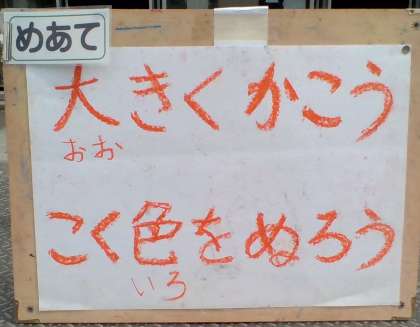 めあて
大きくかこう
おお
こく色をぬろう
いろ